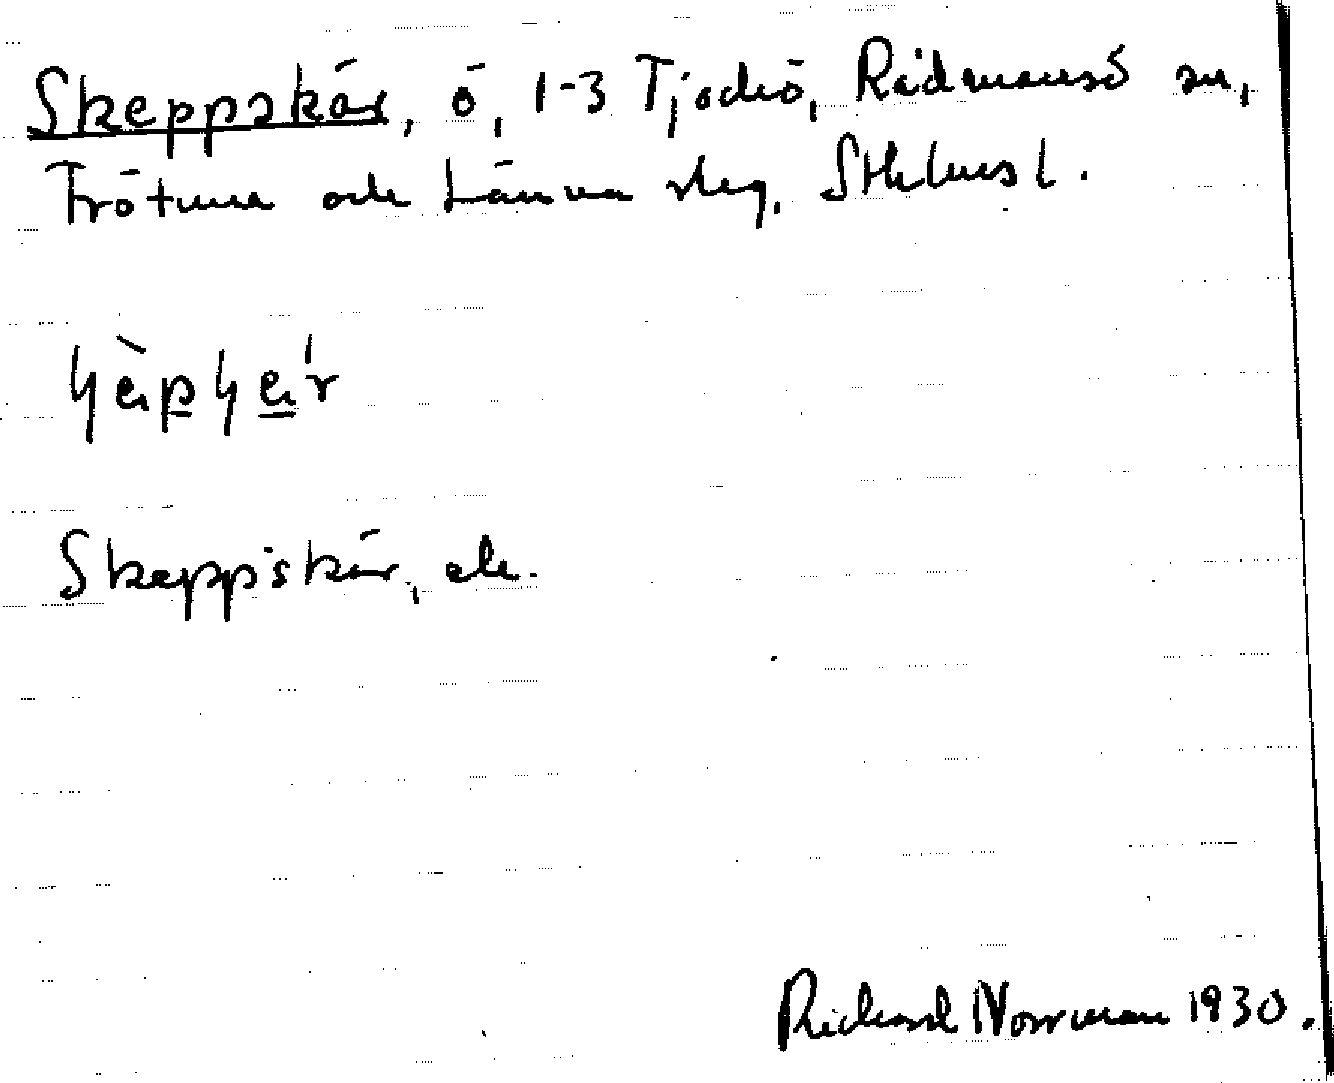 Skeppskär, ö, 1-3 Tjockö, Rådmansö sn,
Frötuna och Länna skg, Sthlms l.
Skeppskär, ek.
Richard Norrman 1930.